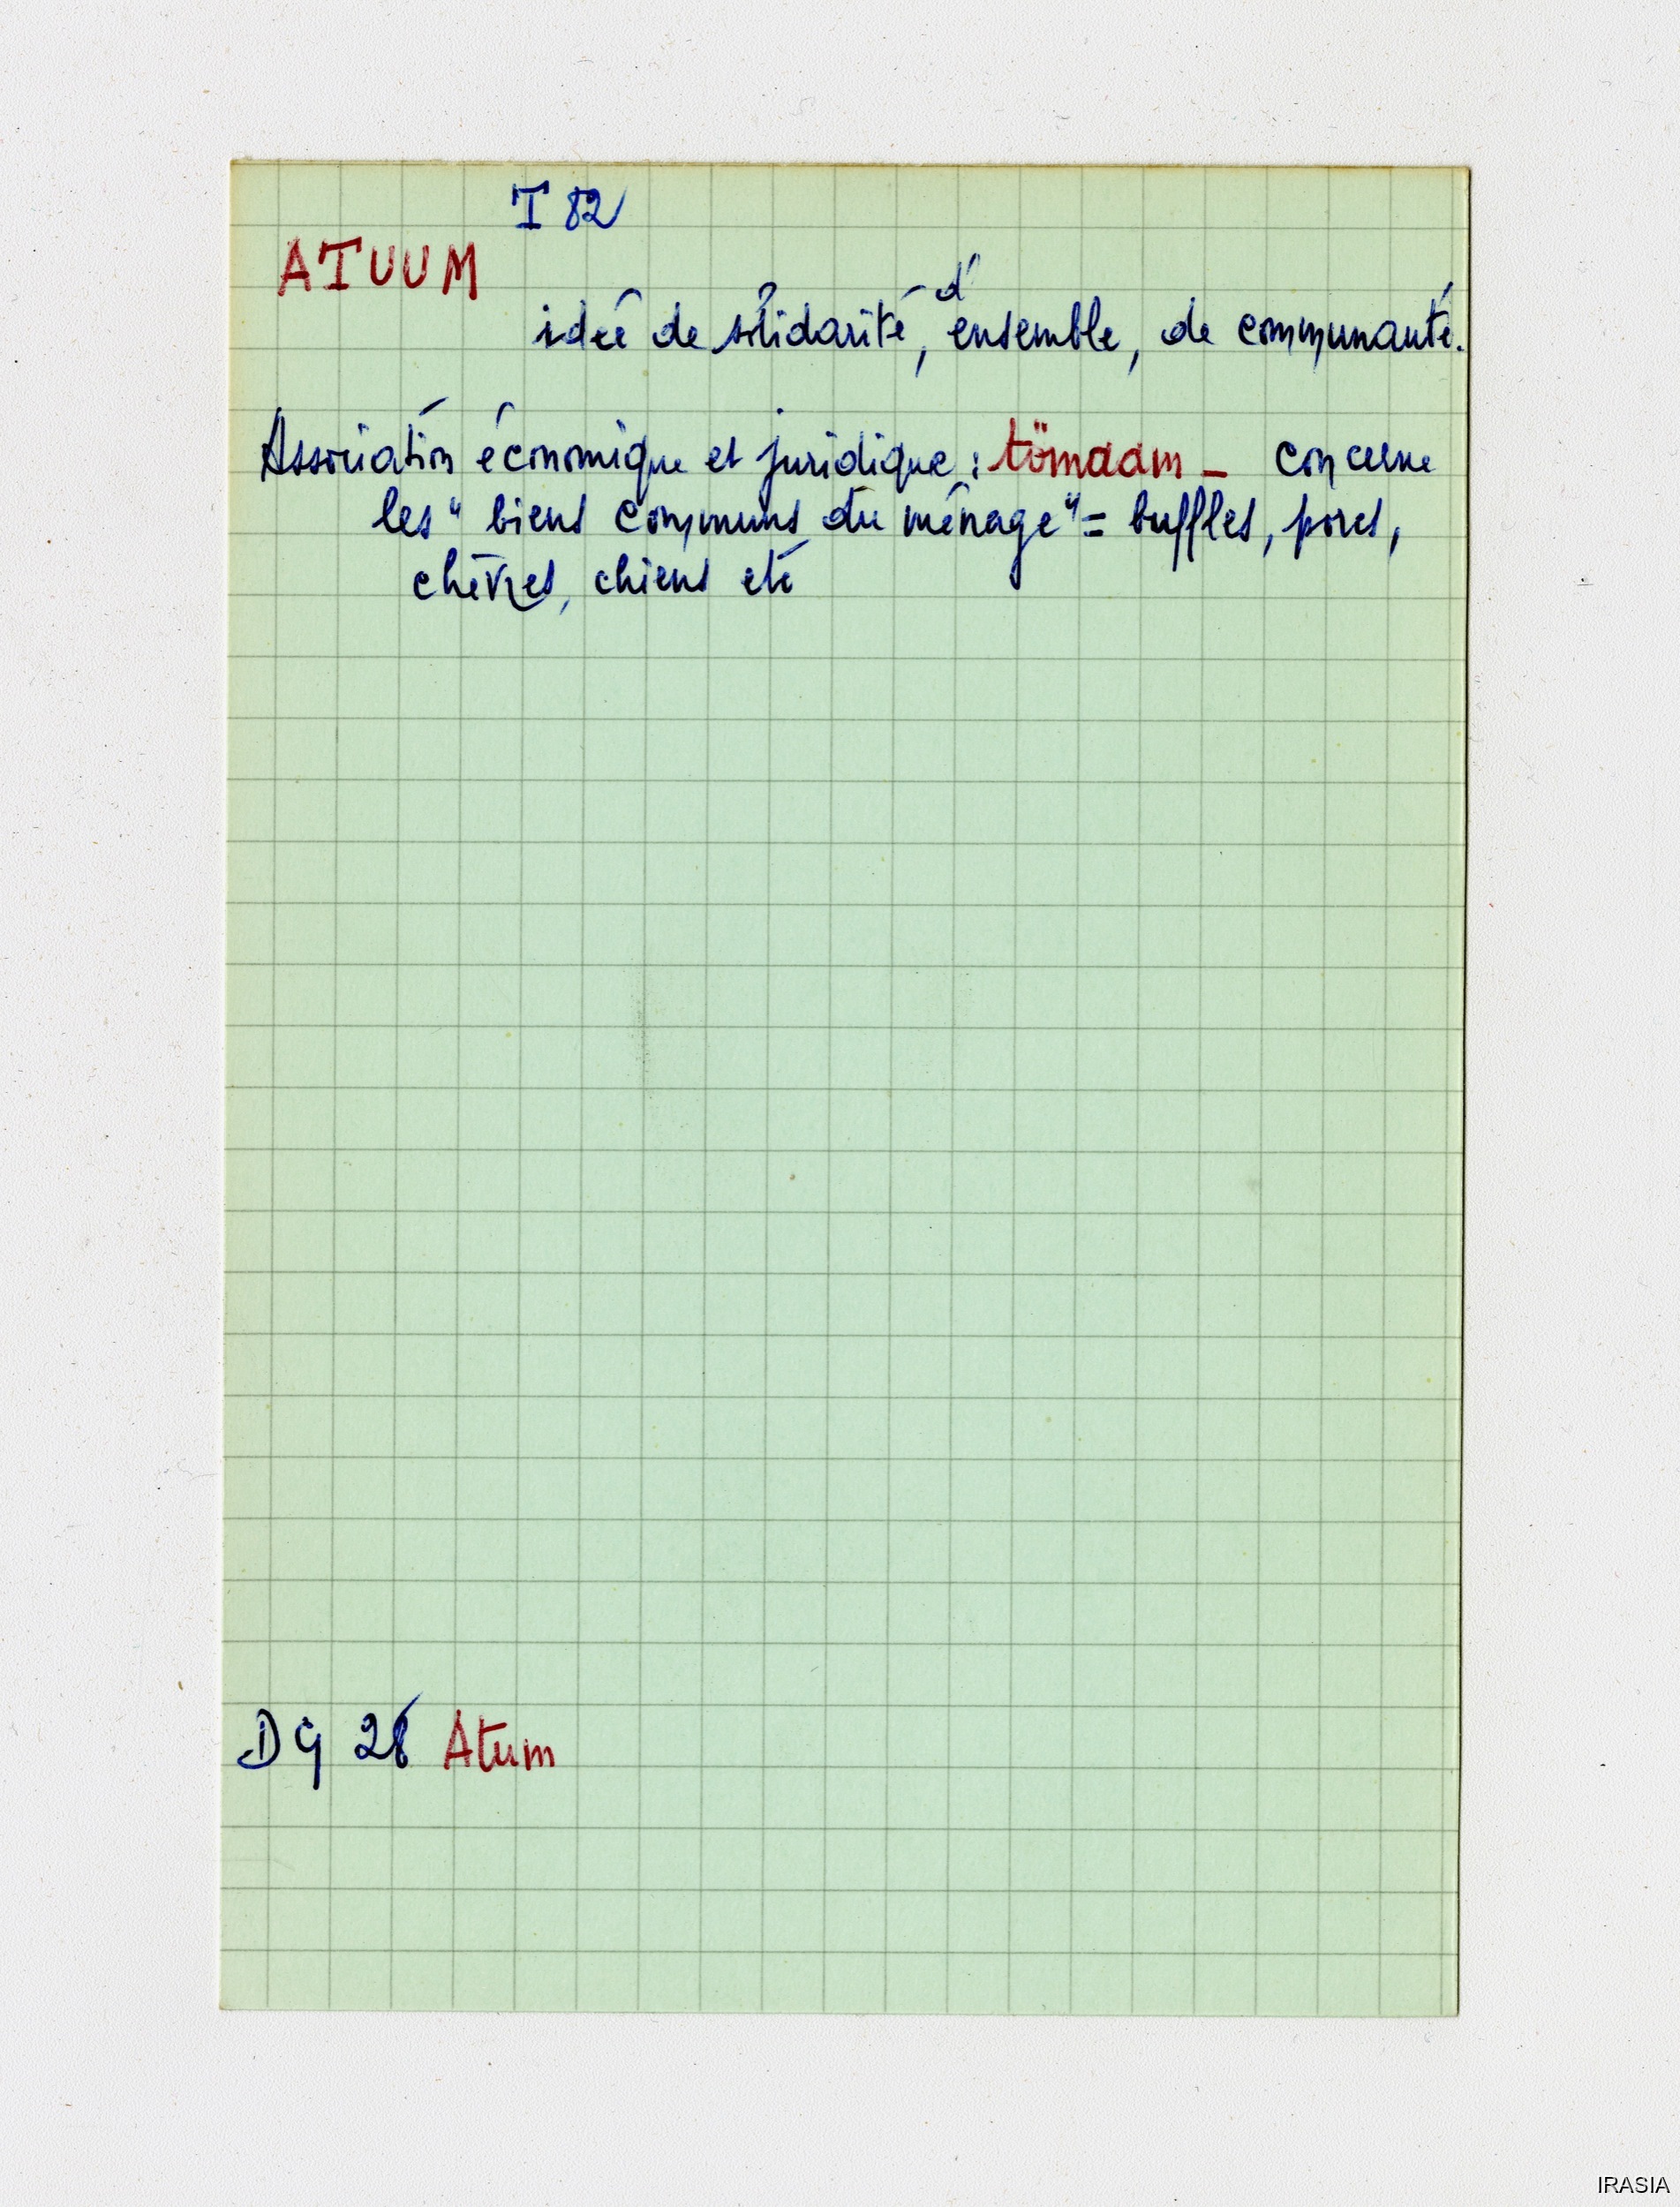 T 82
ATUUM
idée de solidarité, d'ensemble, de communauté.
Association économique et juridique : tömaam - concerne
les "biens communs du ménage" = buffles, porcs,
chèvres, chiens etc
DG 28 Atum
IRASIA